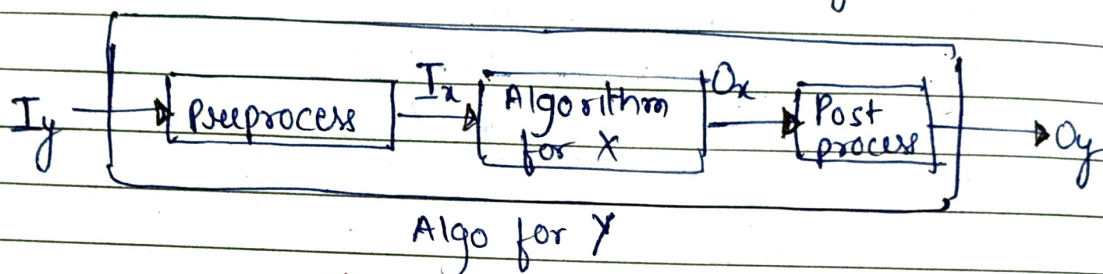 Iy
Preprocess
Ix
Algorithm
for X
Ox
Post
process
Oy
Algo for Y